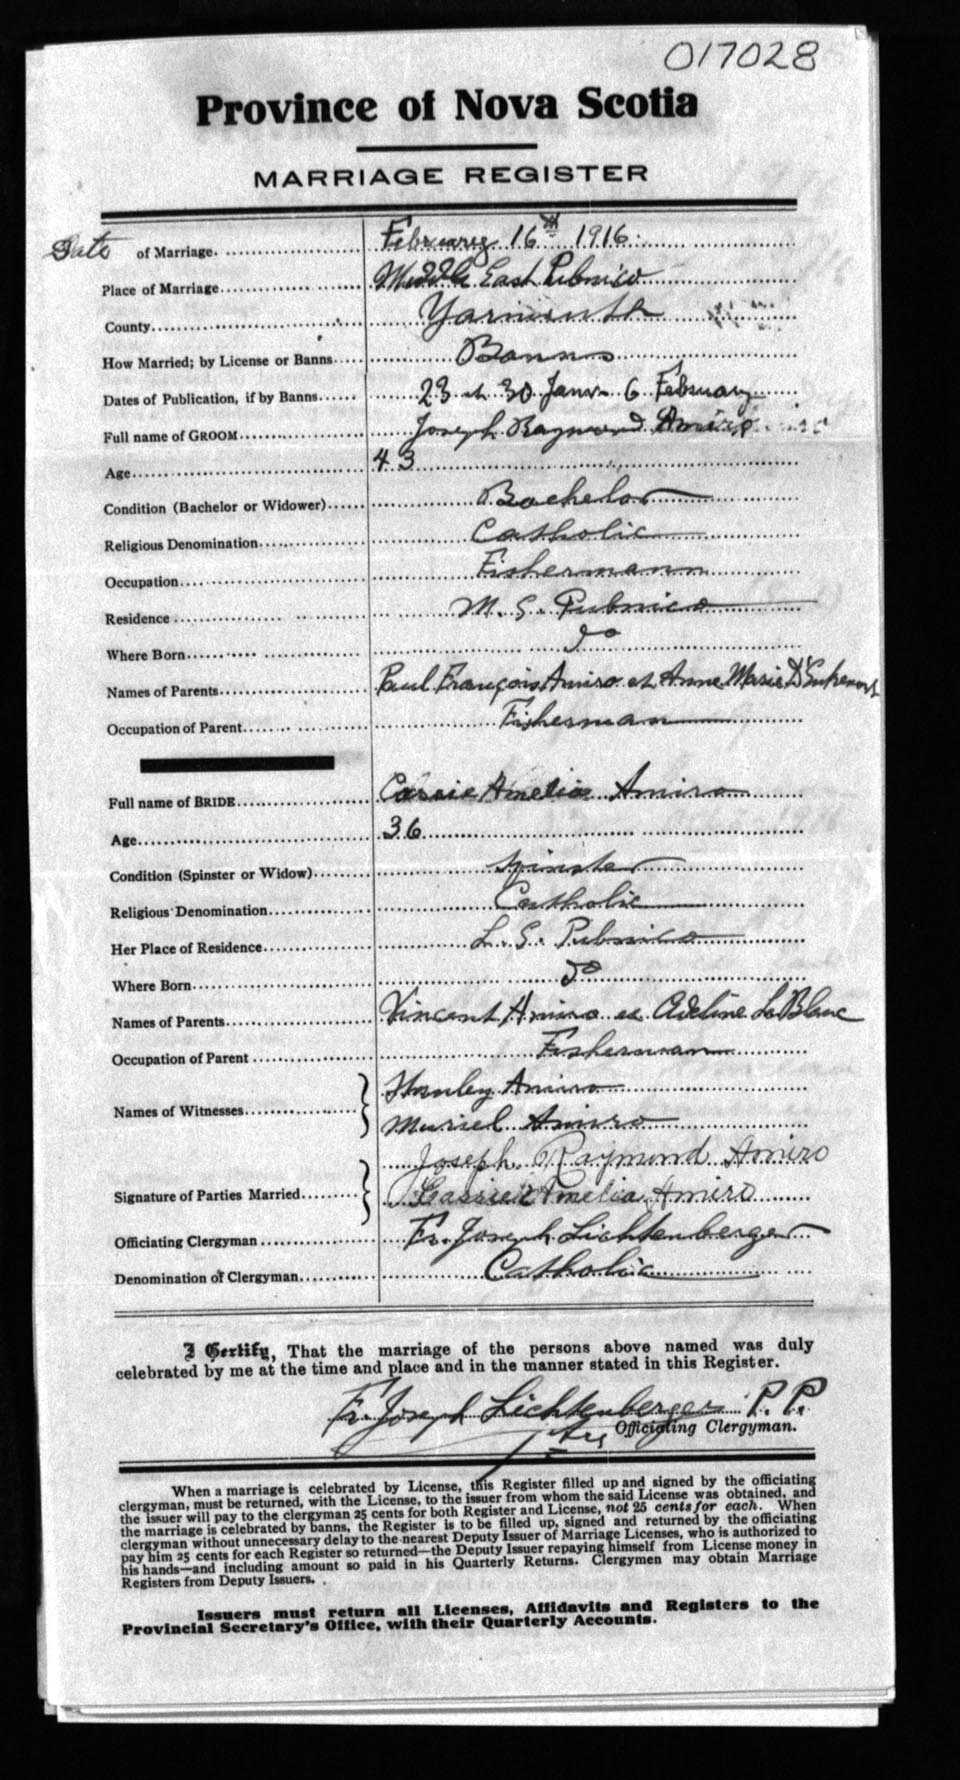 017028
Province of Nova Scotia
MARRIAGE REGISTER
Date of Marriage. February 16th 1916.
Place of Marriage Middle East Pubnico
County Yarmouth
How Married; by License or Banns Banns
Dates of Publication, if by Banns 23 et 30 Janv 6 February
Full name of GROOM Joseph Raymond Amiro
Age 43
Condition (Bachelor or Widower) Bachelor
Religious Denomination Catholic
Occupation Fishermann
Residence M. E. Pubnico
Where Born do
Names of Parents Paul François Amiro et Anne Marie
Occupation of Parent Fisherman
Full name of BRIDE Cassie Amelia Amiro
Age 36
Condition (Spinster or Widow) Spinster
Religious Denomination Catholic
Her Place of Residence L. E. Pubnico
Where Born do
Names of Parents Vincent Amiro et Adeline LeBlanc
Occupation of Parent Fisherman
Names of Witnesses Stanley Amiro
Muriel Amiro
Joseph Raymond Amiro
Signature of Parties Married Cassie Amelia Amiro
Officiating Clergyman Fr. Joseph Lichtenberger
Denomination of Clergyman Catholic
I Certify, That the marriage of the persons above named was duly
celebrated by me at the time and place and in the manner stated in this Register.
Fr. Joseph Lichtenberger P.P.
Officiating Clergyman.
When a marriage is celebrated by License, this Register filled up and signed by the officiating
clergyman, must be returned, with the License, to the issuer from whom the said License was obtained, and
the issuer will pay to the clergyman 25 cents for both Register and License, not 25 cents for each. When
the marriage is celebrated by banns, the Register is to be filled up, signed and returned by the officiating
clergyman without unnecessary delay to the nearest Deputy Issuer of Marriage Licenses, who is authorized to
pay him 25 cents for each Register so returned—the Deputy Issuer repaying himself from License money in
his hands—and including amount so paid in his Quarterly Returns. Clergymen may obtain Marriage
Registers from Deputy Issuers.
Issuers must return all Licenses, Affidavits and Registers to the
Provincial Secretary's Office, with their Quarterly Accounts.